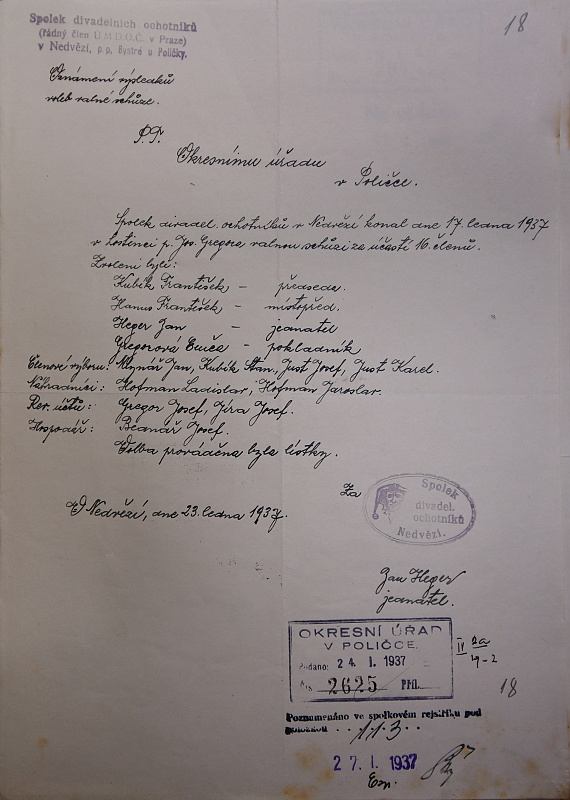 Spolek divadelních ochotníků
(řádný člen Ú.M.D.O.Č. v Praze)
v Nedvězí, p.p. Bystré u Poličky.
18
Oznámení výsledků
voleb valné schůze.
P.T.
Okresnímu úřadu
v Poličce.
Spolek divadel. ochotníků v Nedvězí konal dne 17. ledna 1937
v hostinci p. Jos. Gregora valnou schůzi za účasti 16. členů.
Zvoleni byli:
Kubík František – předseda.
Hanus František – místopřed.
Heger Jan – jednatel
Gregorová Emča – pokladník
Členové výboru: Mlynář Jan, Kubík Stan, Just Josef, Just Karel.
Náhradníci: Hofman Ladislav, Hofman Jaroslav.
Rev. účtů: Gregor Josef, Jíra Josef.
Hospodář: Bednář Josef.
Volba prováděna byla lístky.
V Nedvězí, dne 23. ledna 1937.
Za
Spolek
divadel.
ochotníků
Nedvězí.
Jan Heger
jednatel.
OKRESNÍ ÚŘAD
V POLIČCE.
Podáno: 24. I. 1937
Čís. 2625 Příl.
IV 2a
19-2
18
Poznamenáno ve spolkovém rejstříku pod
položkou 113.
27. I. 1937